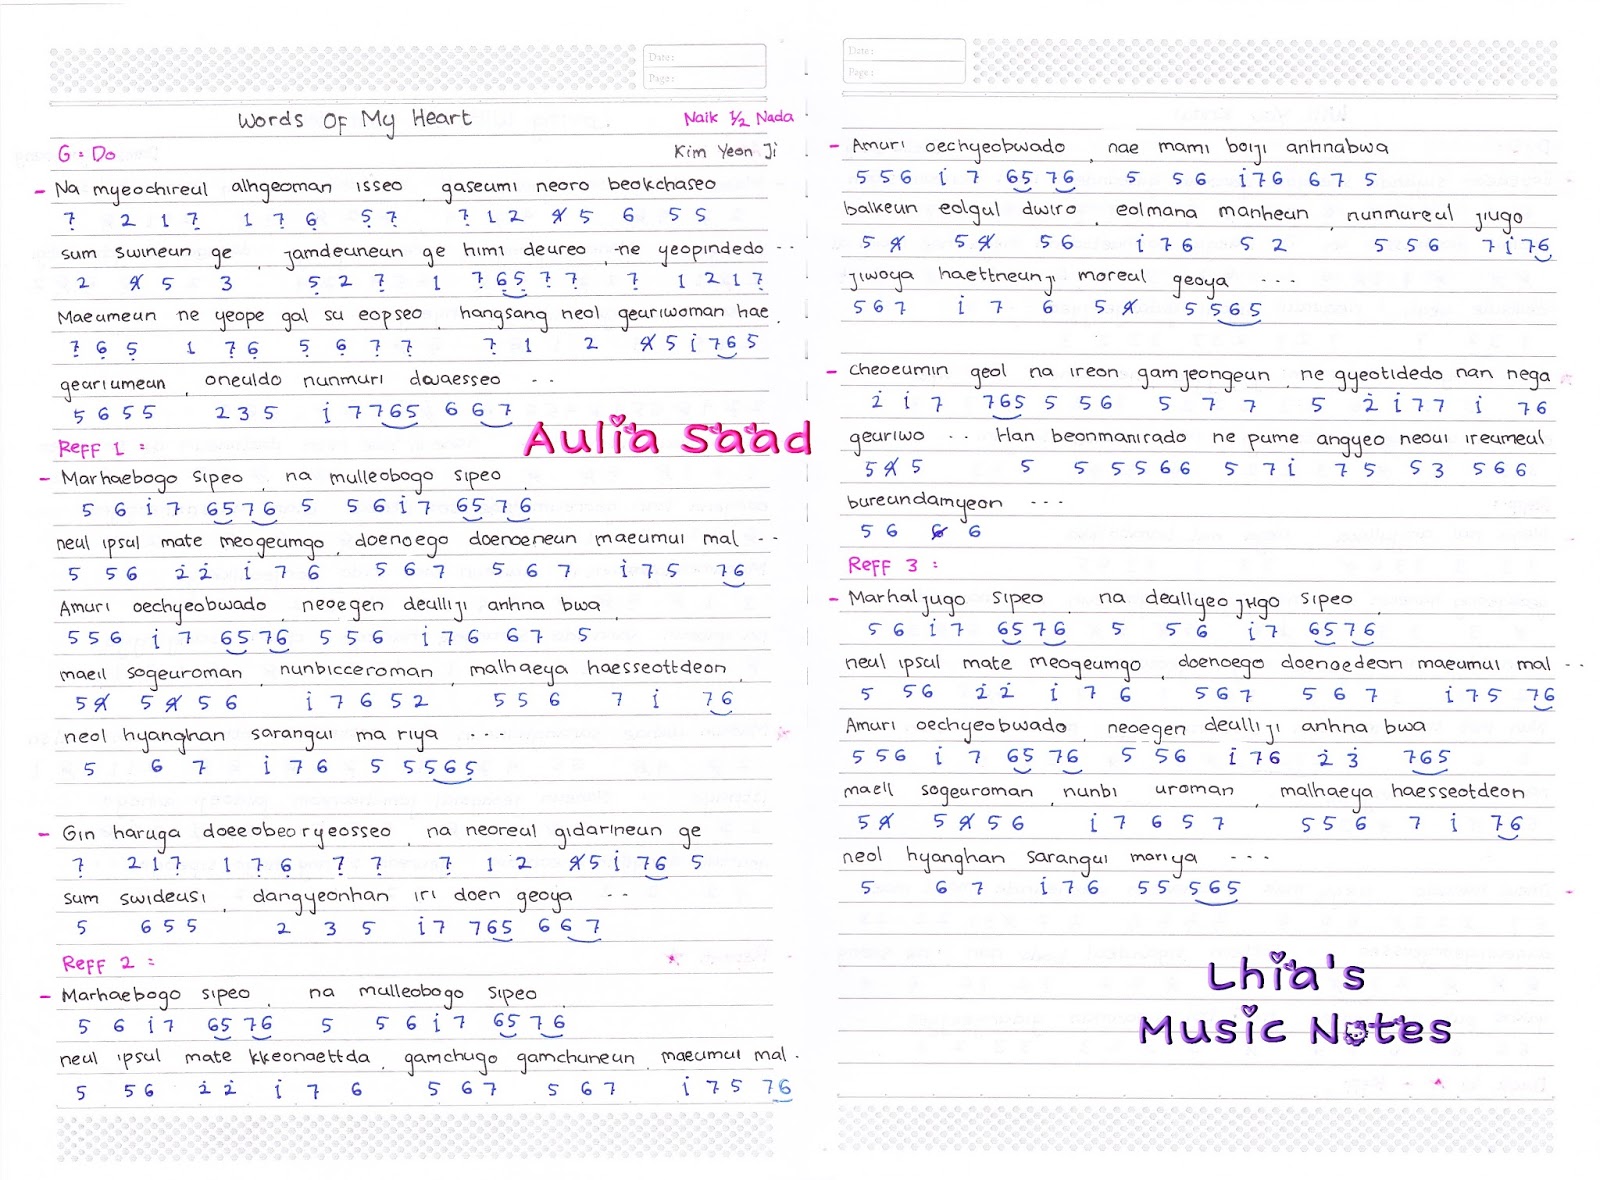 Date:
Page:
Words Of My Heart
Naik ½ Nada
G = Do
Kim Yeon Ji
- Na myeochireul alhgeoman isseo , gaseumi neoro beokchaseo
7̣ 2 1 7̣ 1 7̣ 6̣ 5̣ 7̣ 7̣ 1 2 4̸ 5 6 5 5
sum swineun ge , jamdeuneun ge himi deureo , ne yeopindedo - -
2 4̸ 5 3 5̣ 2 7̣ 1 7̣ 6̣ 5̣ 7̣ 7̣ 7̣ 1 2 1 7̣
Maeumeun ne yeope gal su eopseo , hangsang neol geuriwoman hae ,
7̣ 6̣ 5̣ 1 7̣ 6̣ 5̣ 6̣ 7̣ 7̣ 7̣ 1 2 4̸ 5 i 7 6 5
geuriumeun , oneuldo nunmuri dwaesseo - -
5 6 5 5 2 3 5 i 7 7 6 5 6 6 7
Reff 1 :
- Marhaebogo sipeo , na mulleobogo sipeo ,
5 6 i 7 65 76 5 5 6 i 7 65 76
neul ipsul mate meogeumgo , doenoego doenoeneun maeumui mal - -
5 56 2̇ 2̇ i 7 6 5 6 7 5 6 7 i 7 5 76
Amuri oechyeobwado , neoegen deulliji anhna bwa ,
5 5 6 i 7 65 76 5 5 6 i 7 6 6 7 5
maeil sogeuroman , nunbicceroman , malhaeya haesseottdeon ,
5 4̸ 5 4̸ 5 6 i 7 6 5 2 5 5 6 7 i 76
neol hyanghan sarangui ma riya - - -
5 6 7 i 7 6 5 5 5 6 5
- Gin haruga doeeobeoryeosseo , na neoreul gidarineun ge
7̣ 2 1 7̣ 1 7̣ 6̣ 7̣ 7̣ 7̣ 1 2 4̸ 5 i 76 5
sum swideusi , dangyeonhan iri doen geoya - -
5 6 5 5 2 3 5 i 7 765 6 6 7
Reff 2 :
- Marhaebogo sipeo , na mulleobogo sipeo ,
5 6 i 7 65 76 5 5 6 i 7 65 76
neul ipsul mate kkeonaettda , gamchugo gamchuneun , maeumui mal -
5 56 2̇ 2̇ i 7 6 5 6 7 5 6 7 i 7 5 76
Aulia Saad
Date:
Page:
- Amuri oechyeobwado , nae mami boiji anhnabwa
5 5 6 i 7 65 76 5 5 6 i 7 6 6 7 5
balkeun eolgul dwiro , eolmana manheun , nunmureul jiugo
5 4̸ 5 4̸ 5 6 i 7 6 5 2 5 5 6 7 i 76
jiwoya haettneunji moreul geoya - - -
5 6 7 i 7 6 5 4̸ 5 5 6 5
- Cheoeumin geol na ireon gamjeongeun , ne gyeotidedo nan nega
2̇ i 7 765 5 56 5 7 7 5 2̇ i 7 7 i 76
geuriwo - - Han beonmanirado ne pume angyeo neoui ireumeul
5 4̸ 5 5 5 5 5 6 6 5 7 i 7 5 5 3 5 6 6
bureundamyeon - - -
5 6 6̸ 6
Reff 3 :
- Marhaljugo sipeo , na deullyeo jugo sipeo ,
5 6 i 7 65 76 5 5 6 i 7 65 76
neul ipsul mate meogeumgo , doenoego doenoedeon maeumui mal - -
5 56 2̇ 2̇ i 7 6 5 6 7 5 6 7 i 7 5 76
Amuri oechyeobwado , neoegen deulliji anhna bwa
5 5 6 i 7 65 76 5 5 6 i 7 6 2̇ 3̇ 765
maeil sogeuroman , nunbi uroman , malhaeya haesseotdeon
5 4̸ 5 4̸ 5 6 i 7 6 5 7 5 5 6 7 i 76
neol hyanghan sarangui mariya - - -
5 6 7 i 7 6 5 5 5 6 5
Lhia's
Music Notes